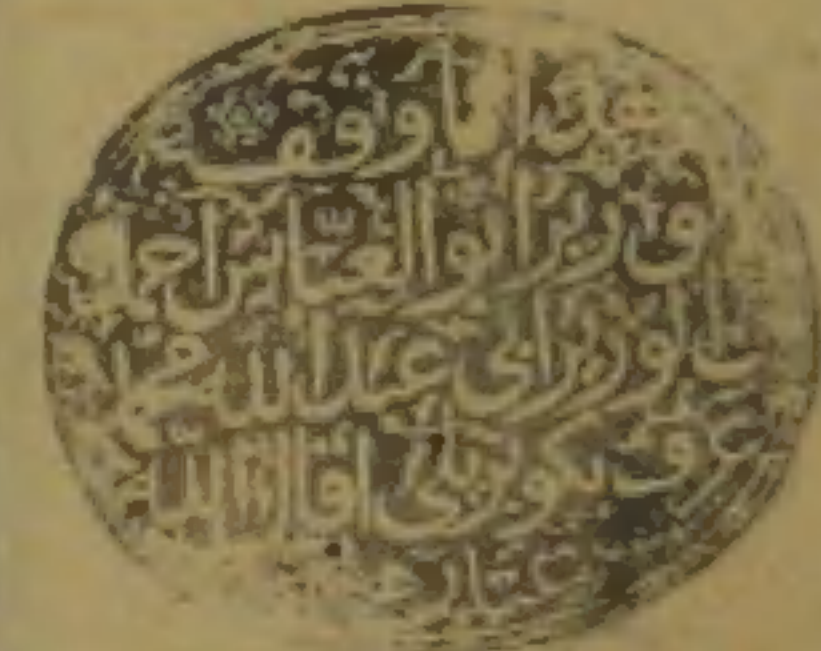 هذا ما وقف
وزير ابو العباس احمد
بن الوزير ابي عبد الله محمد
عرف بكوبريلي اقال الله
عثارهما